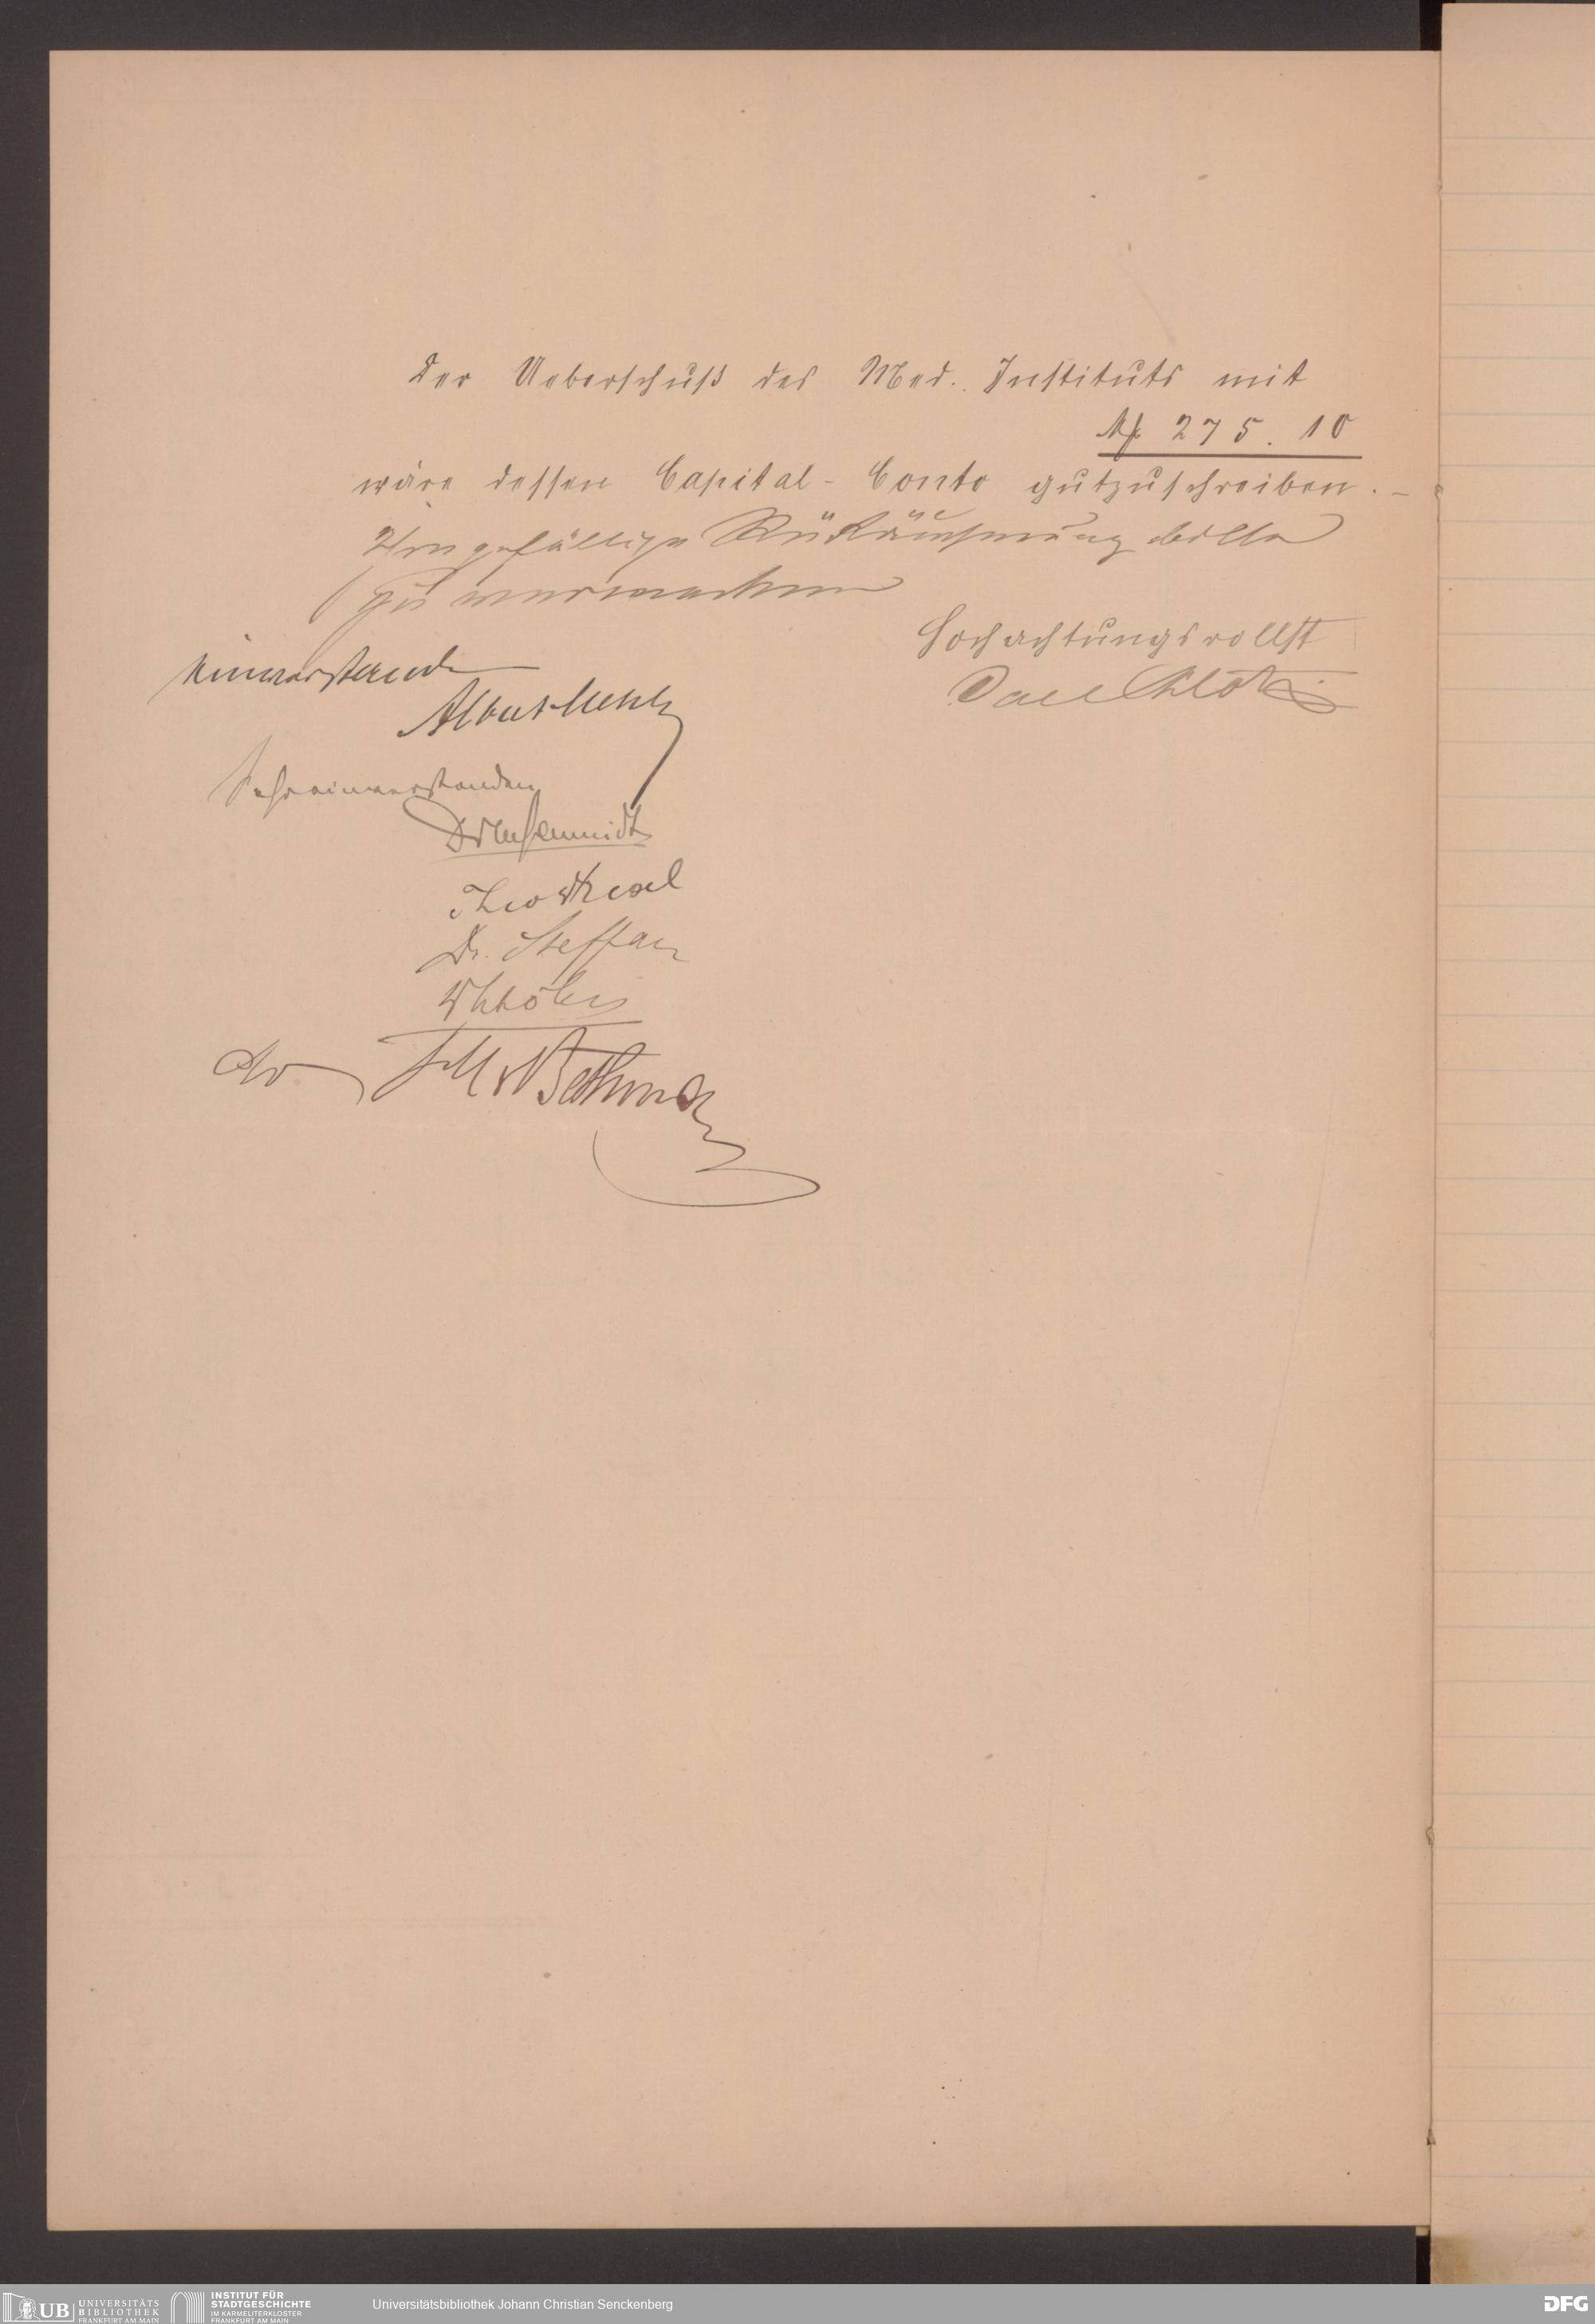 Der Ueberschuß des Med. Instituts mit
M 275. 10
wäre dessen Capital-Conto gutzuschreiben. –
Ihre gefällige Rückäußerung bitte
zu
Hochachtungsvollst
einverstanden
Albert Metzler
Sehr einverstanden
Dr M Schmidt
Dr. Steffan
do
UB UNIVERSITÄTS
BIBLIOTHEK
FRANKFURT AM MAIN
INSTITUT FÜR
STADTGESCHICHTE
IM KARMELITERKLOSTER
FRANKFURT AM MAIN
Universitätsbibliothek Johann Christian Senckenberg
DFG